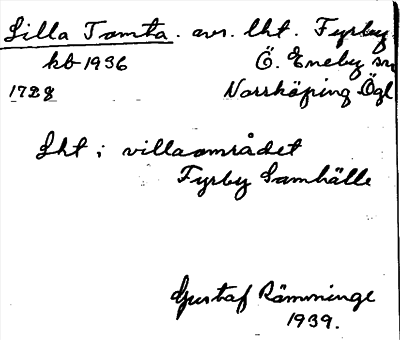 Lilla Tomta. avs. lht. Fyrby
kb 1936 Ö. Eneby sn
1728 Norrköping Ögl
Lht i villaområdet
Fyrby Samhälle
Gustaf Rämminge
1939.